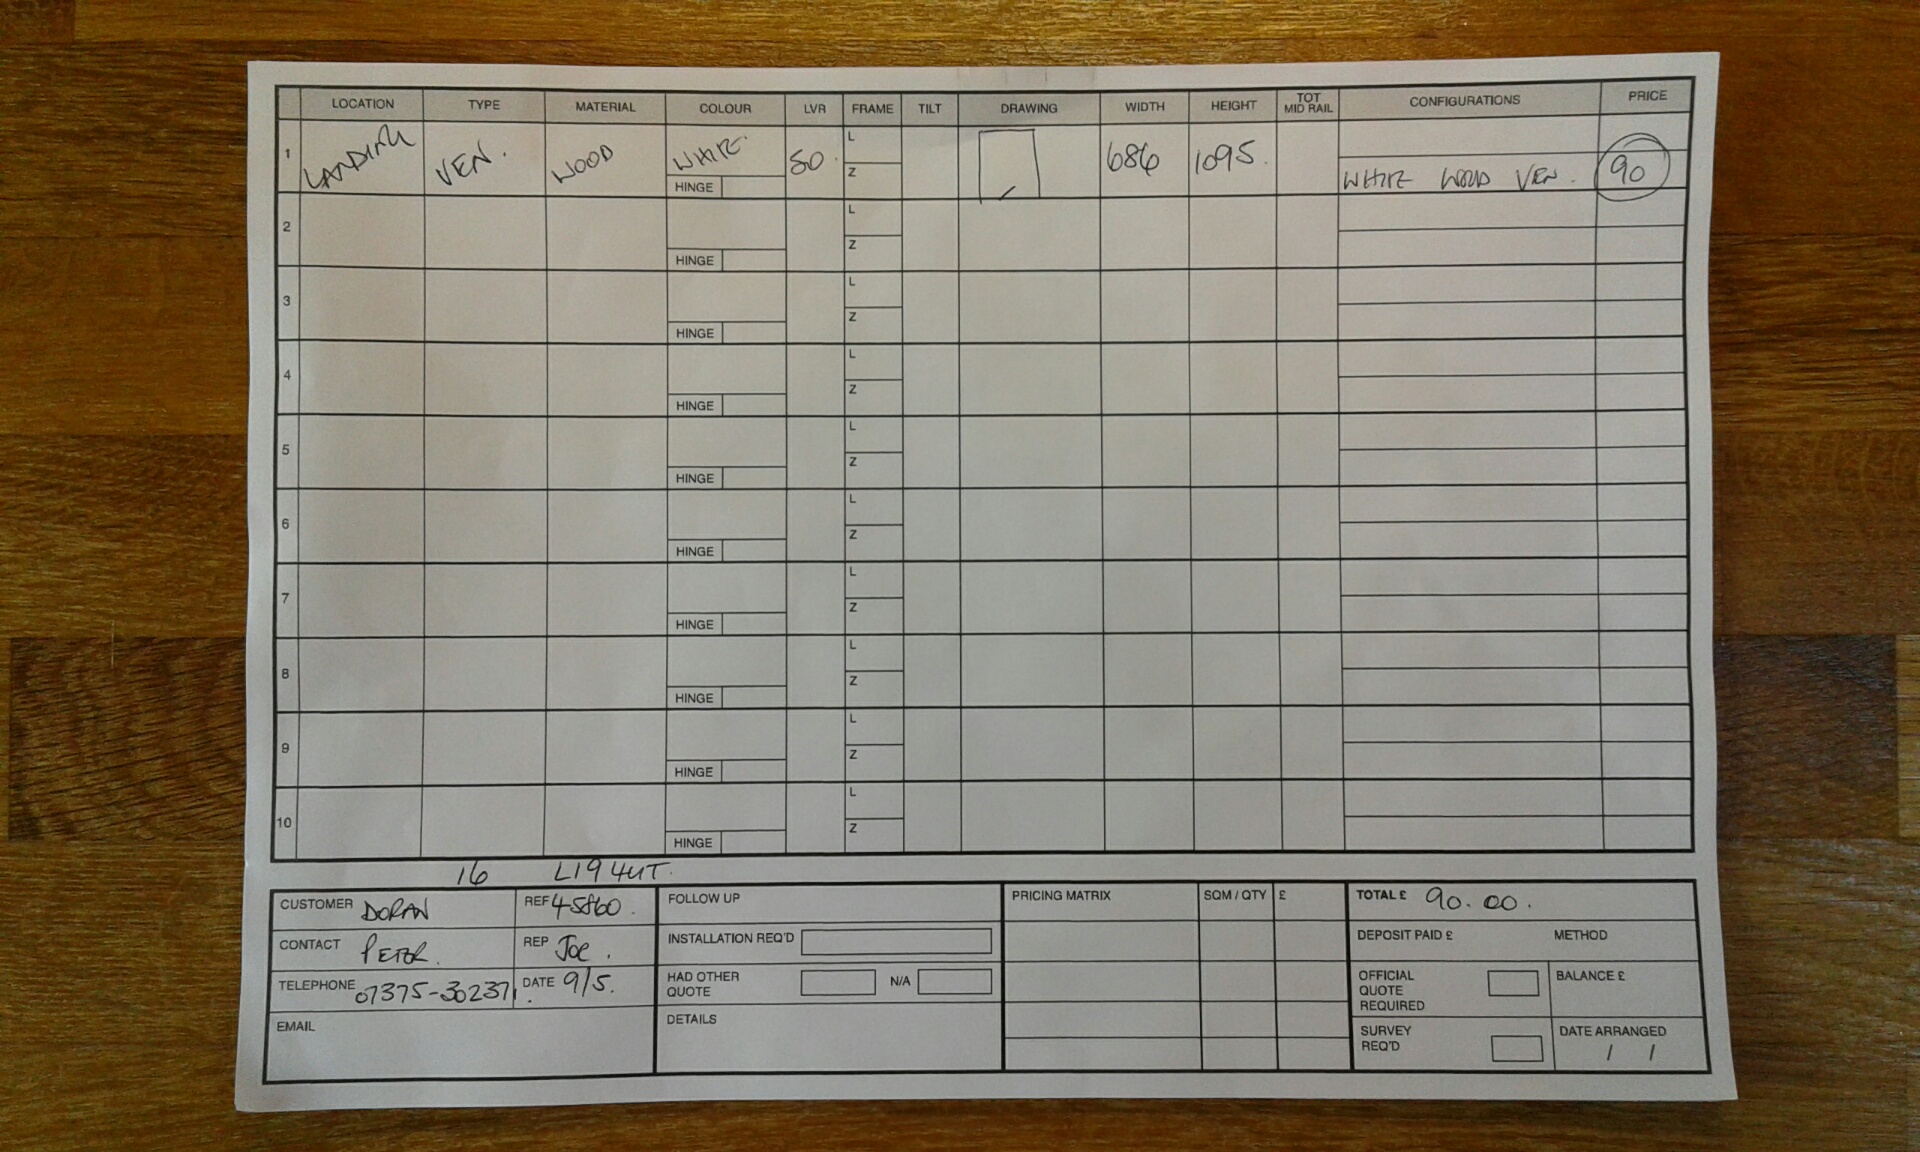 LOCATION TYPE MATERIAL COLOUR LVR FRAME TILT DRAWING WIDTH HEIGHT TOT MID RAIL CONFIGURATIONS PRICE
1 LANDING VEN. WOOD WHITE 50. L 686 1095.
HINGE Z WHITE WOOD VEN. 90
2 L
HINGE Z
3 L
HINGE Z
4 L
HINGE Z
5 L
HINGE Z
6 L
HINGE Z
7 L
HINGE Z
8 L
HINGE Z
9 L
HINGE Z
10 L
HINGE Z
16 L19 4UT.
CUSTOMER DORAN REF 45860. FOLLOW UP PRICING MATRIX SQM / QTY £ TOTAL £ 90.00.
CONTACT PETER. REP JOE. INSTALLATION REQ'D DEPOSIT PAID £ METHOD
TELEPHONE 07375-302371. DATE 9/5. HAD OTHER QUOTE N/A OFFICIAL QUOTE REQUIRED BALANCE £
EMAIL DETAILS SURVEY REQ'D DATE ARRANGED / /